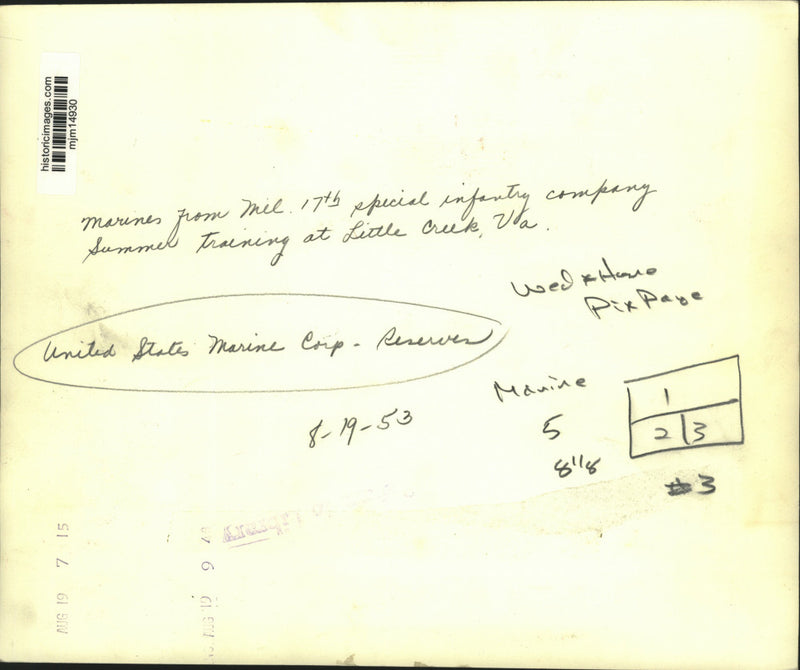 historicimages.com
mjm14930
Marines from Mil. 17th special infantry company
Summer training at Little Creek, Va.
Wed x Home
Pix Page
United States Marine Corp - Reserves
Marine
8-19-53
5
1
2 3
#3
AUG 19 7 15
9